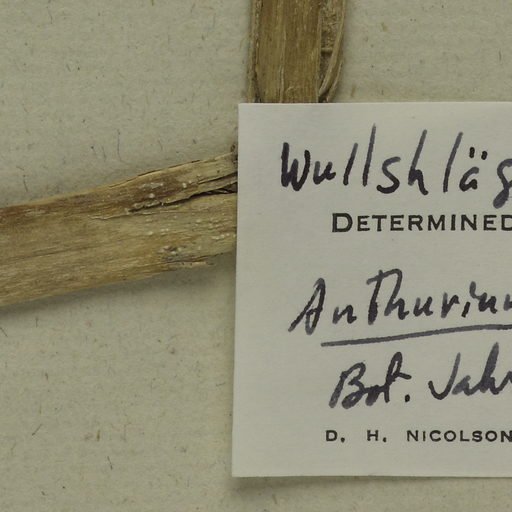 Wullshläg
DETERMINED
Anthurium
Bot. Jahr
D. H. NICOLSON